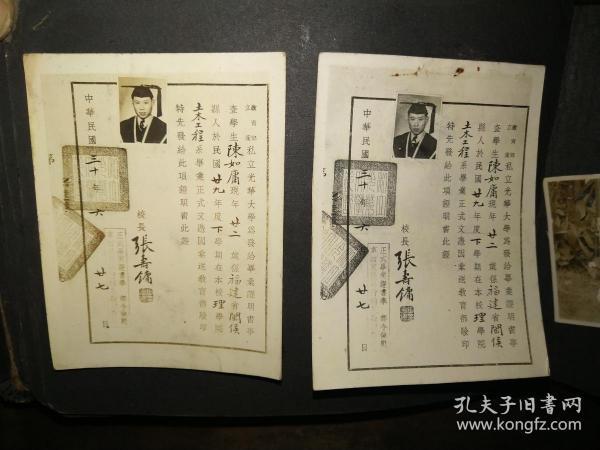 私立光華大學爲發給畢業證明書事
查學生陳如庸現年廿二歲係福建省閩侯
縣人於民國廿九年度下學期在本校理學院
土木工程系學業正式文憑因彙送教育部驗印
特先發給此項證明書此證
校長張壽鏞
中華民國三十年六月廿七日
私立光華大學爲發給畢業證明書事
查學生陳如庸現年廿二歲係福建省閩侯
縣人於民國廿九年度下學期在本校理學院
土木工程系學業正式文憑因彙送教育部驗印
特先發給此項證明書此證
校長張壽鏞
中華民國三十年六月廿七日
孔夫子旧书网
www.kongfz.com